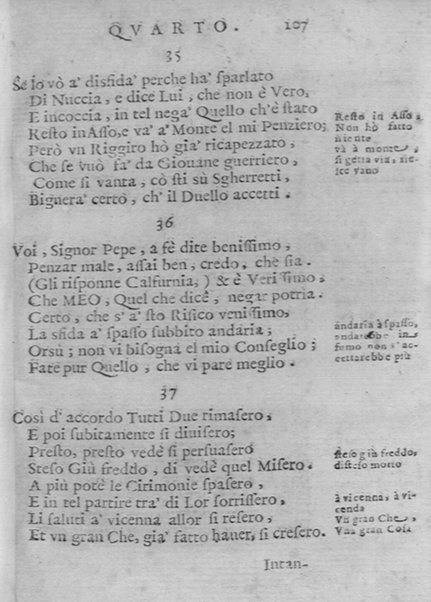 QVARTO. 107
35
Se io vò a' disfida' perche ha' sparlato
Di Nuccia, e dice Lui, che non è Vero,
E incoccia, in tel nega' Quello ch'è stato
Resto in Asso, e va' a' Monte el mi Penziero;
Resto in Asso, Non hò fatto niente
và à monte, si getta via, riesce vano
Però vn Riggiro hò già' ricapezzato,
Che se vuò fa' da Giouane guerriero,
Come si vanta, cò sti sù Sgherretti,
Bignera' certo, ch'il Duello accetti.
36
Voi, Signor Pepe, a fè dite benissimo,
Penzar male, assai ben, credo, che sia.
(Gli risponne Calfurnia,) & è Verissimo,
Che MEO, Quel che dice, negar potria.
Certo, che s'a' sto Risico venissimo,
La sfida a' spasso subbito andaria;
andaria à spasso, andarebbe in fumo non s'accettarebbe più
Orsù; non vi bisogna el mio Conseglio;
Fate pur Quello, che vi pare meglio.
37
Così d'accordo Tutti Due rimasero,
E poi subitamente si diuisero;
Presto, presto vedè si persuasero
Steso Giù freddo, di vedè quel Misero.
steso già freddo, disteso morto
A più potè le Cirimonie spasero,
E in tel partire tra' di Lor sorrissero,
Li saluti a' vicenna allor si resero,
à vicenna, à vicenda
Et vn gran Che, già' fatto hauer, si cresero.
Vn gran Che, Vna gran Cosa
Intan-